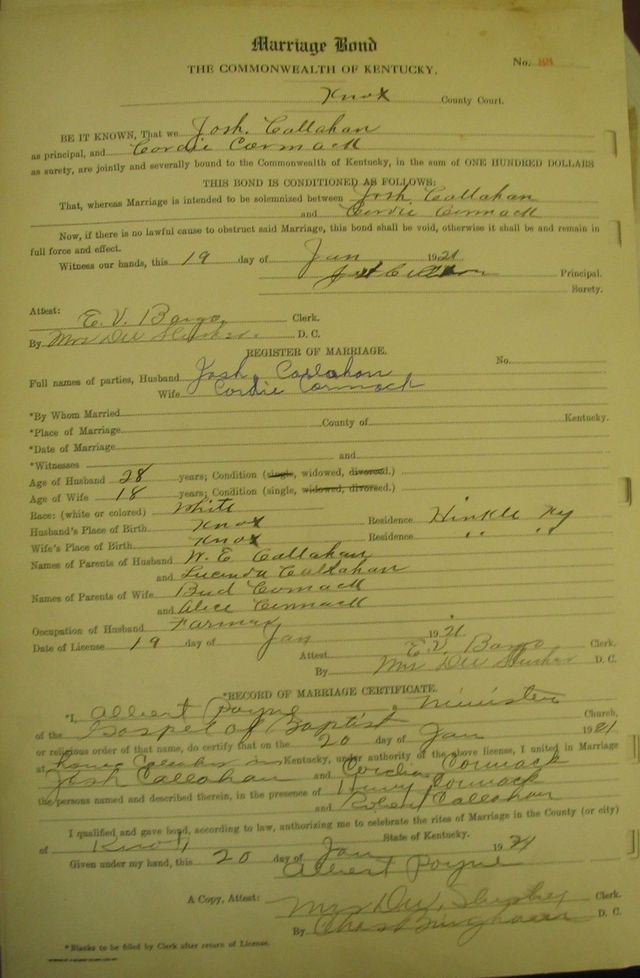 Marriage Bond
THE COMMONWEALTH OF KENTUCKY. No. 88
Knox County Court.
BE IT KNOWN, That we Josh. Callahan
as principal, and Cordie Cormack
as surety, are jointly and severally bound to the Commonwealth of Kentucky, in the sum of ONE HUNDRED DOLLARS
THIS BOND IS CONDITIONED AS FOLLOWS:
That, whereas Marriage is intended to be solemnized between Josh Callahan
and Cordie Cormack
Now, if there is no lawful cause to obstruct said Marriage, this bond shall be void, otherwise it shall be and remain in
full force and effect.
Witness our hands, this 19 day of Jan 1921
Principal.
Surety.
Attest:
E. V. Bargo Clerk.
By Mrs Dee D. C.
REGISTER OF MARRIAGE.
Full names of parties, Husband Josh Callahan No.
Wife Cordie Cormack
*By Whom Married
*Place of Marriage County of Kentucky.
*Date of Marriage
*Witnesses and
Age of Husband 28 years; Condition (single, widowed, divorced.)
Age of Wife 18 years; Condition (single, widowed, divorced.)
Race: (white or colored) White
Husband's Place of Birth Knox Residence Hinkle Ky
Wife's Place of Birth Knox Residence " "
Names of Parents of Husband W. E Callahan
and Lucinda Callahan
Names of Parents of Wife Bud Cormack
and Alice Cormack
Occupation of Husband Farmer
Date of License 19 day of Jan 1921
Attest E. V. Bargo Clerk.
By Mrs Dee D. C.
*RECORD OF MARRIAGE CERTIFICATE.
*I, Albert Payne, Minister
of the Gospel of Baptist Church,
or religious order of that name, do certify that on the 20 day of Jan 1921
at Kentucky, under authority of the above license, I united in Marriage
Josh Callahan and Cordia Cormack
the persons named and described therein, in the presence of Henry Cormack
and Robert Callahan
I qualified and gave bond, according to law, authorizing me to celebrate the rites of Marriage in the County (or city)
of Knox State of Kentucky.
Given under my hand, this 20 day of Jan 1921
Albert Payne
A Copy, Attest: Mrs Dee Clerk.
By Bingham D. C.
*Blanks to be filled by Clerk after return of License.